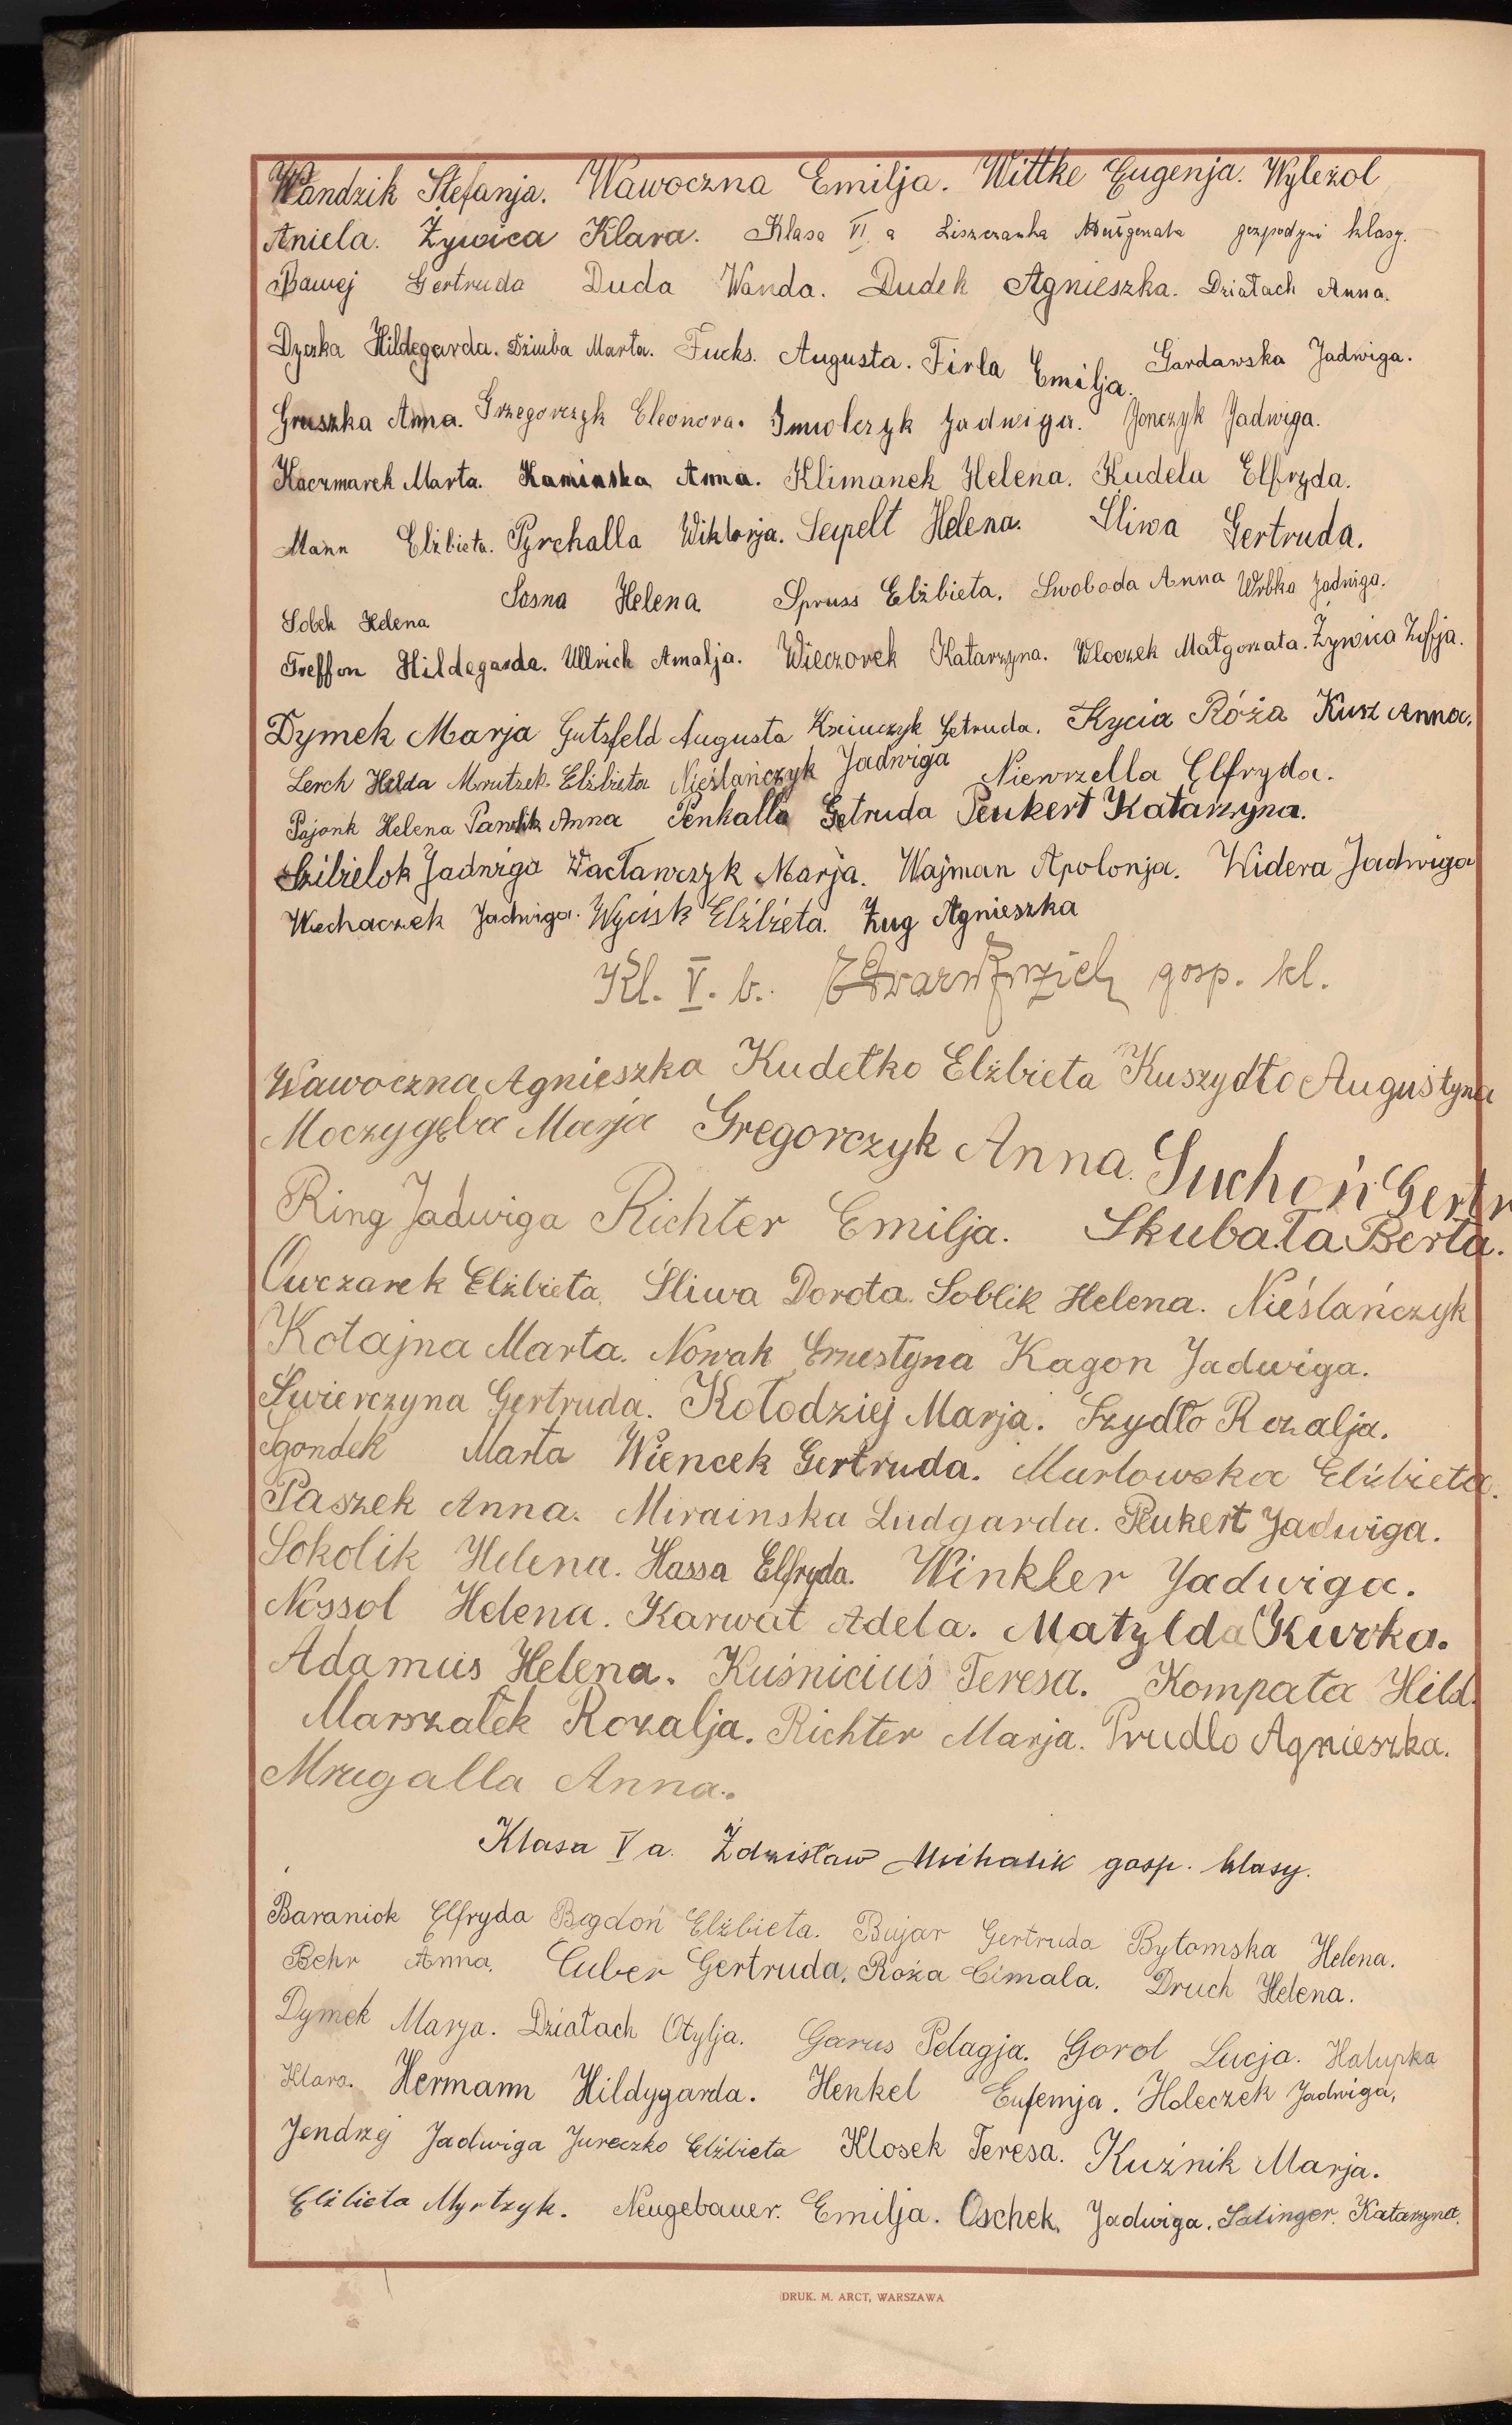 Wandzik Stefanja. Wawoczna Emilja. Wittke Eugenja. Wyleżol
Aniela. Żywica Klara. Klasa VI a Liszczanka gospodyni klasy.
Gertruda Duda Wanda. Dudek Agnieszka. Działach Anna.
Dyczka Hildegarda. Dziuba Marta. Fucks. Augusta. Firla Emilja. Gardawska Jadwiga.
Gruszka Anna. Grzegorczyk Eleonora. Imiolczyk Jadwiga. Jonczyk Jadwiga.
Kaczmarek Marta. Kaminska Anna. Klimanek Helena. Kudela Elfryda.
Mann Elżbieta. Pyrchalla Wiktorja. Seipelt Helena. Śliwa Gertruda.
Sobek Helena Sosna Helena Spruss Elżbieta. Swoboda Anna Wrbka Jadwiga.
Treffon Hildegarda. Ullrich Amalja. Wieczorek Katarzyna. Wloczek Małgorzata. Żywica Zofja.
Dymek Marja Gutsfeld Augusta Ksciuczyk Getruda. Kycia Róża Kusz Anna.
Lerch Helda Mrutzek. Elżbieta Nieślańczyk Jadwiga Niewrzella Elfryda.
Pajonk Helena Pawlik Anna Penkalla Getruda Peukert Katarzyna.
Szibielok Jadwiga Wacławczyk Marja. Wajman Apolonja. Widera Jadwiga
Wiechaczek Jadwiga. Wycisk Elżbieta. Żug Agnieszka
Kl. V. b. gosp. kl.
Wawoczna Agnieszka Kudełko Elżbieta Kuszydło Augustyna
Moczygęba Marja Gregorczyk Anna. Suchoń Gertr
Ring Jadwiga Richter Emilja. Skubała Berta.
Owczarek Elżbieta. Śliwa Dorota. Soblik Helena. Nieślańczyk
Kotajna Marta. Nowak Ernestyna Kagon Jadwiga.
Świerczyna Gertruda. Kołodziej Marja. Szydło Rozalja.
Sgondek Marta Wiencek Gertruda. Murlowska Elżbieta.
Paszek Anna. Mirainska Ludgarda. Peukert Jadwiga.
Sokolik Helena. Hassa Elfryda. Winkler Jadwiga.
Nossol Helena. Karwat Adela. Matylda Kurka.
Adamus Helena. Kuśniciuś Teresa. Kompała Hild.
Marszałek Rozalja. Richter Marja. Prudlo Agnieszka.
Mrugalla Anna.
Klasa V a. Zdzisław Michalik gosp. klasy.
Baraniok Elfryda Bogdoń Elżbieta. Bujar Gertruda Bytomska Helena.
Behr Anna. Cuber Gertruda. Roża Cimala. Druch Helena.
Dymek Marja. Działach Otylja. Garus Pelagja. Gorol Lucja. Halupka
Klara. Hermann Hildygarda. Henkel Eufemja. Holeczek Jadwiga.
Jendrzej Jadwiga Jureczko Elżbieta Klosek Teresa. Kuźnik Marja.
Elżbieta Myrtzyk. Neugebauer. Emilja. Oschek. Jadwiga. Salinger. Katarzyna.
DRUK. M. ARCT, WARSZAWA